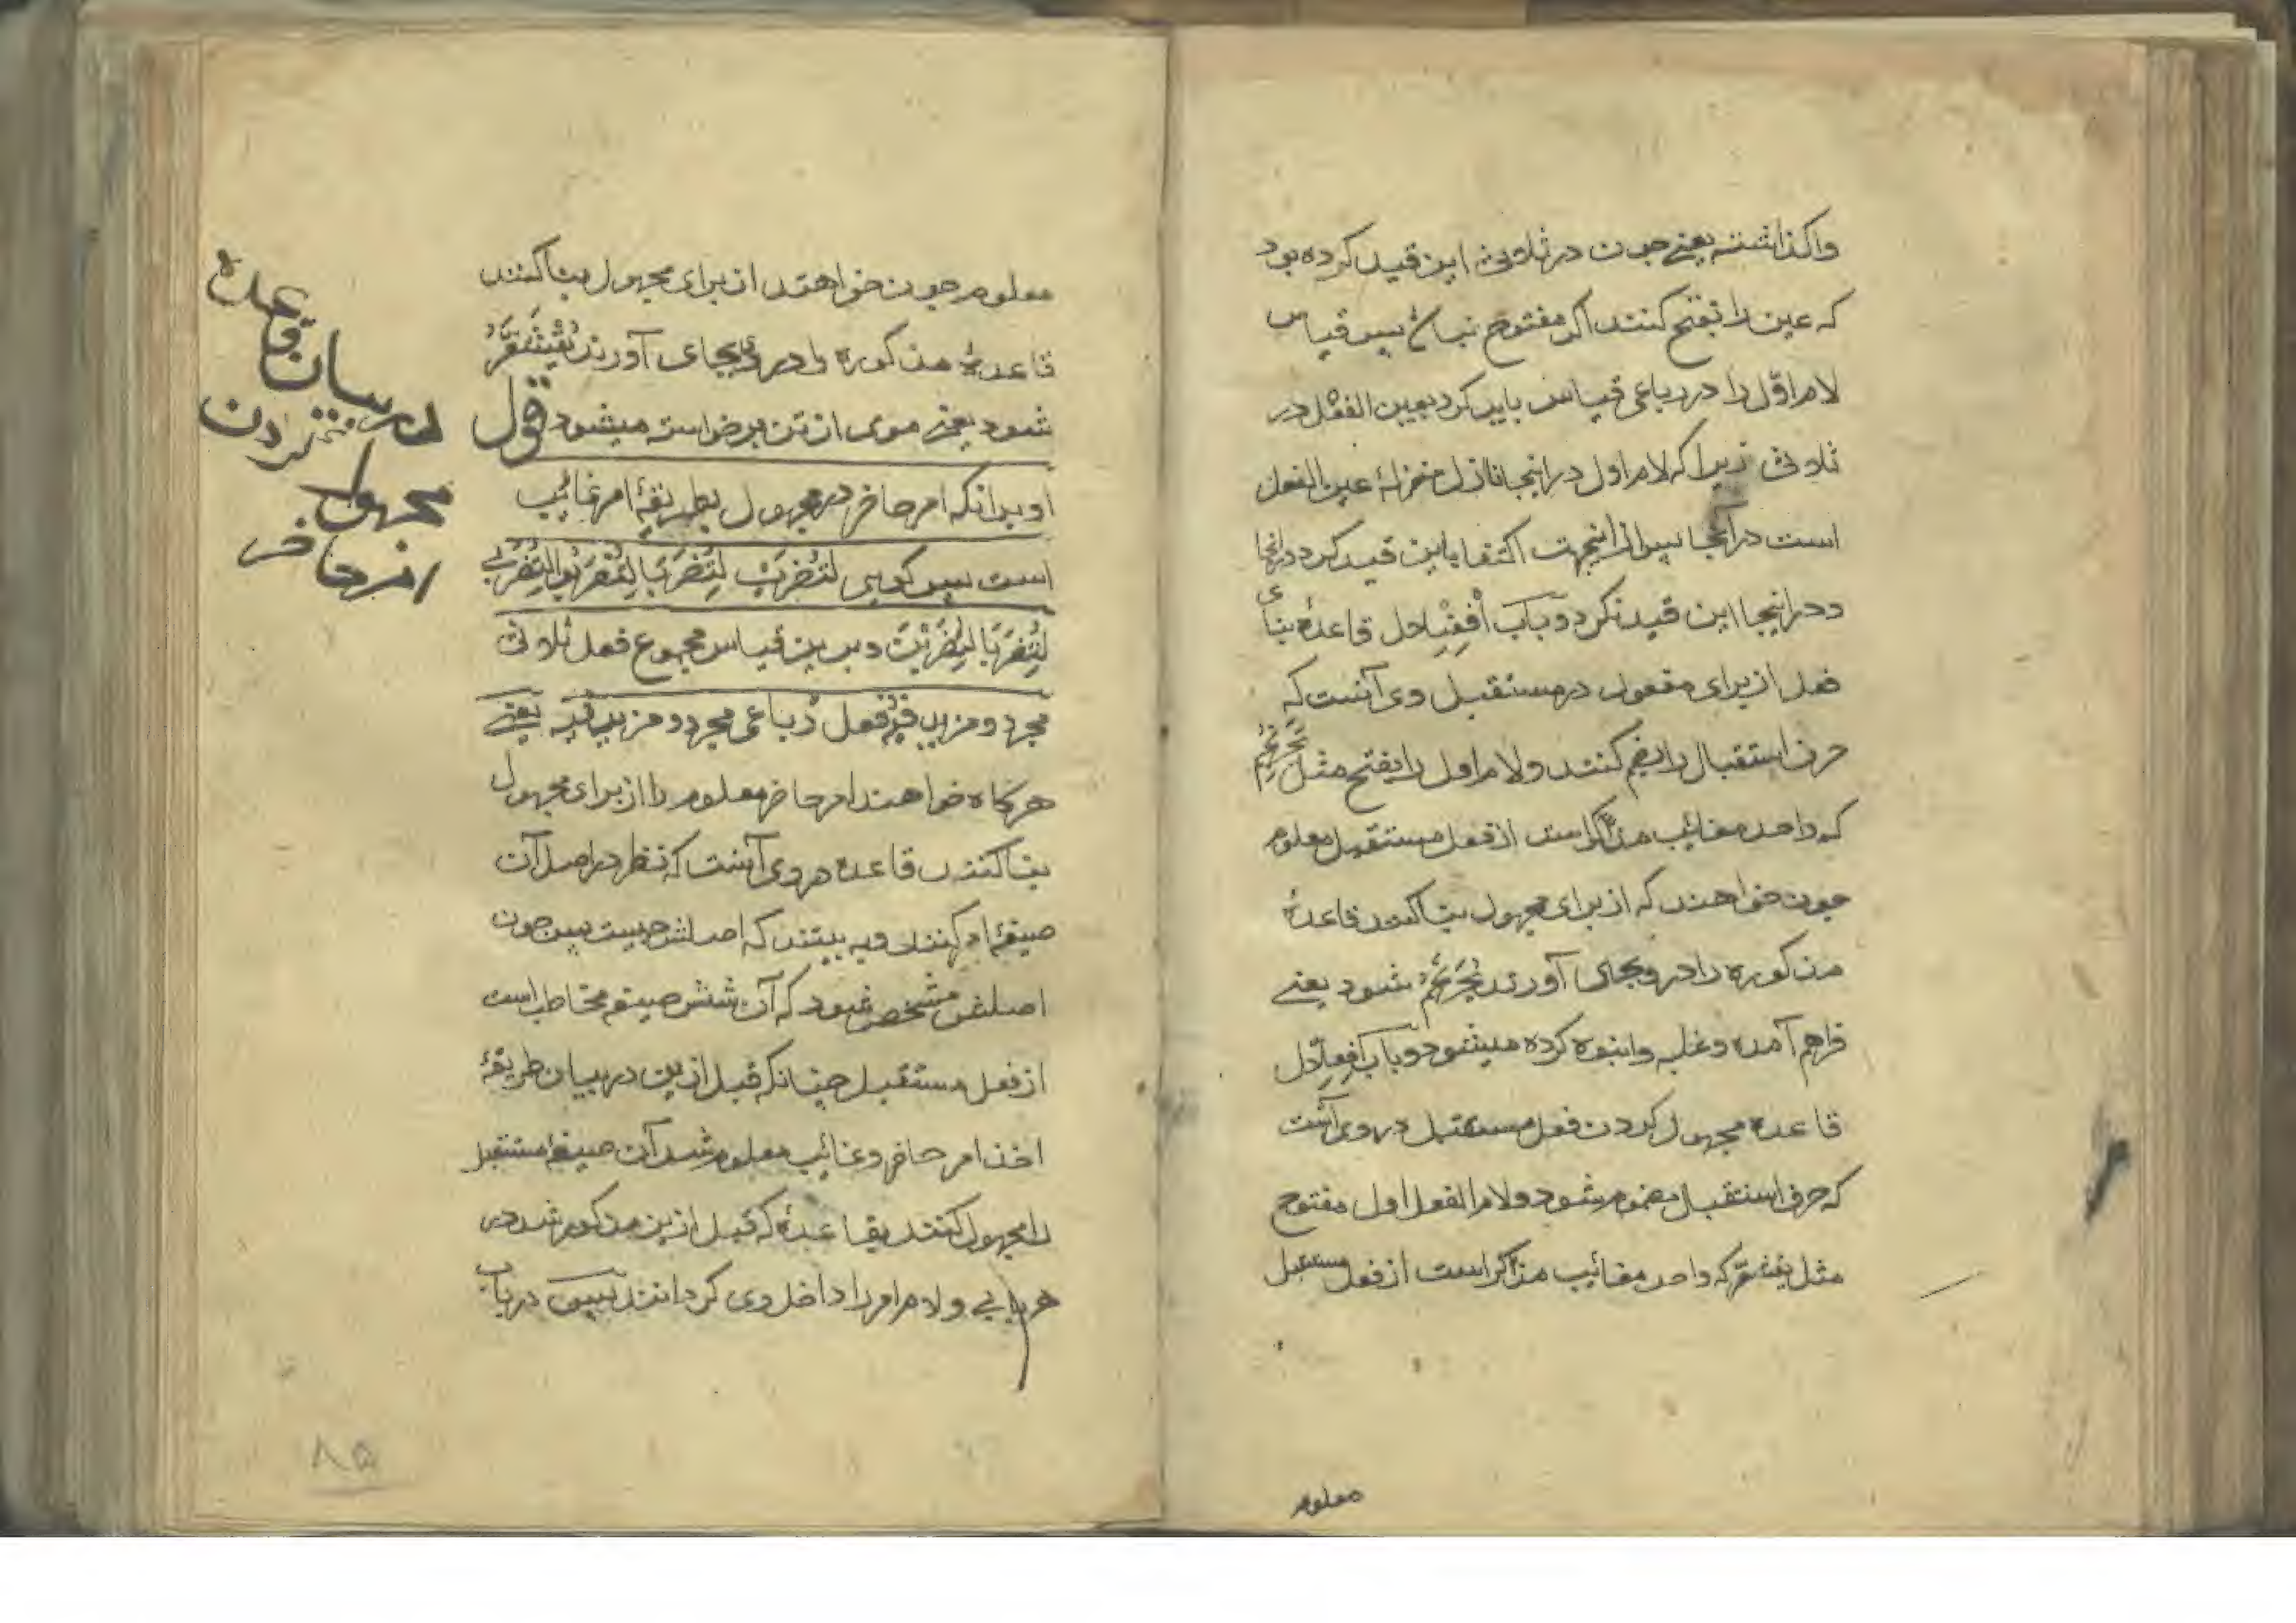 واکذاشته یعنے جون در ثلاثی این قید کرده بود
که عین را بفتح کنند اکر مفتوح نباشد پس قیاس
لام اوّل را در رباعی قیاس باید کرد بعین الفعل در
ثلاثی زیرا که لام اول در اینجا نازل منزلهٔ عین الفعل
است در آنجا پس از اینجهت اکتفا باین قید کرد در انجا
و در اینجا این قید نکرد و باب اِفْعِنْلال قاعدهٔ بنای
فعل از برای مفعول در مستقبل وی آنست که
حرف استقبال را بضم کنند و لام اول را بفتح مثل یَحْرَنْجِمُ
که واحد مغائب مذکر است از فعل مستقبل معلوم
جون خواهند که از برای مجهول بنا کنند قاعدهٔ
مذکوره را در وی بجای آورند یُحْرَنْجَمُ شود یعنے
فراهم آمده و غلبه و انبوه کرده میشود و باب اِفعِلّال
قاعده مجهول کردن فعل مستقبل در وی آنست
که حرف استقبال مضموم شود و لام الفعل اول مفتوح
مثل یقشعرّ که واحد مغائب مذکر است از فعل مستقبل
معلوم
معلوم جون خواهند از برای مجهول بنا کنند
قاعدهٔ مذکوره را در وی بجای آورند یُقْشَعَرُّ
شود یعنے موی از تن برخواسته میشود قول
او بدانکه امر حاضر در مجهول بطریقهٔ امر غائب
است پس کویی لِتُضْرَبْ لِتُضْرَبَا لِتُضْرَبُوا لِتُضْرَبِی
لِتُضْرَبَا لِتُضْرَبْنَ و برین قیاس مجموع فعل ثلاثی
مجرد و مزید فیه و فعل رباعی مجرد و مزید فیه یعنے
هرکاه خواهند امر حاضر معلوم را از برای مجهول
بنا کنند قاعده در وی آنست که نظر در اصل آن
صیغهٔ امر کنند و به بینند که اصلش چیست پس جون
اصلش مشخص شود که آن شش صیغه مخاطب است
از فعل مستقبل جنانکه قبل ازین در بیان طریقهٔ
اخذ امر حاضر و غائب معلوم شد آن صیغهٔ مستقبل
را مجهول کنند بقاعدهٔ که قبل ازین مذکور شد در
هر بابی و لام امر را داخل وی کردانند پس در باب
در بیان قاعده
کردن
مجهول
امر حاضر
۸۵